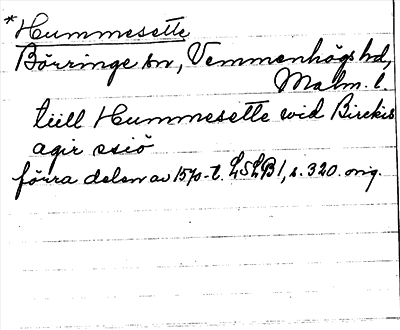 *Hummesette
Börringe sn, Vemmenhögs hd,
Malm. l.
tiill Hummesette wid Birckis
agir ssiö
förra delen av 1570-t. LSLB1, s. 320. orig.